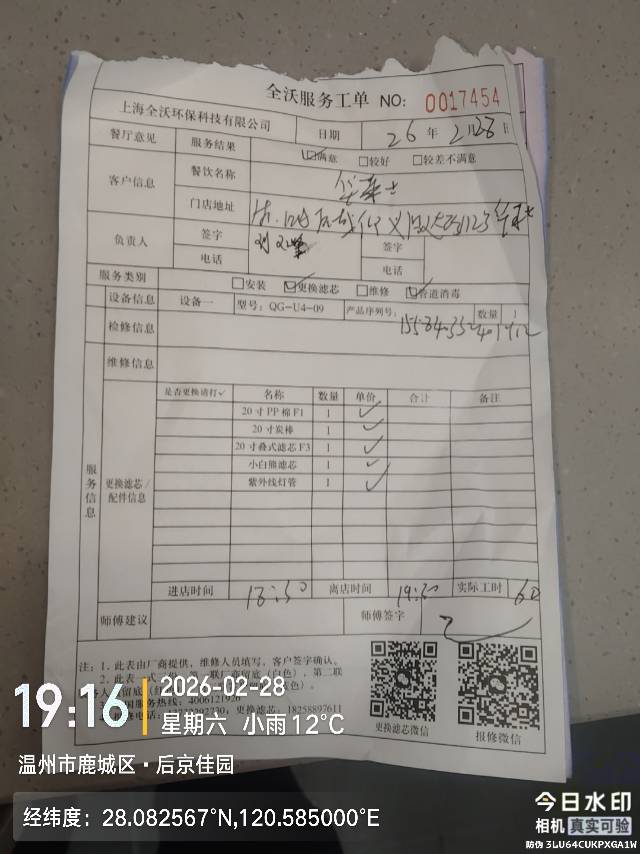 全沃服务工单 NO: 0017454
上海全沃环保科技有限公司 日期 26年2月28日
餐厅意见 服务结果 满意 较好 较差不满意
客户信息 餐饮名称 华莱士
门店地址
负责人 签字 签字
电话 电话
服务类别 安装 更换滤芯 维修 管道消毒
设备信息 设备一 型号: QG-U4-09 产品序列号: 数量 1
检修信息
维修信息
服务信息
更换滤芯/配件信息
是否更换请打✓ 名称 数量 单价 合计 备注
20寸PP棉F1 1 ✓
20寸炭棒 1 ✓
20寸叠式滤芯F3 1 ✓
小白熊滤芯 1 ✓
紫外线灯管 1 ✓
进店时间 18:50 离店时间 19:50 实际工时 60
师傅建议 师傅签字
注: 1、此表由厂商提供, 维修人员填写, 客户签字确认。
2、此表一式 联厂商留底(白色)、第二联
服务热线: 4006121926
电话: 更换滤芯: 18258897611
更换滤芯微信 报修微信
19:16
2026-02-28
星期六 小雨 12℃
温州市鹿城区·后京佳园
经纬度: 28.082567°N,120.585000°E
今日水印
相机 真实可验
防伪 3LU64CUKPXGA1W